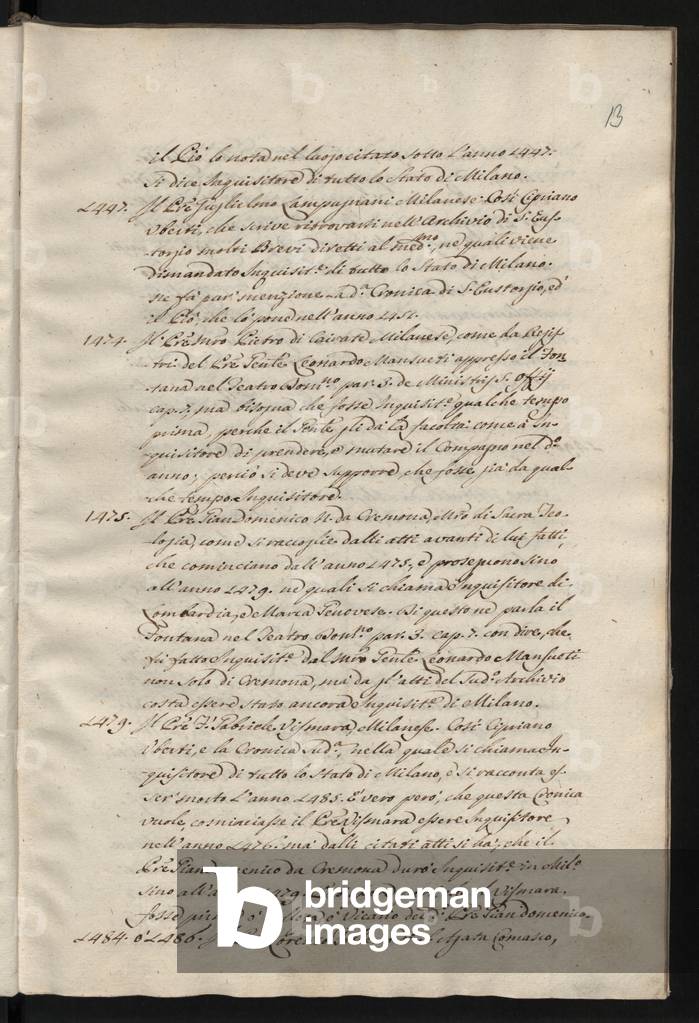 13
il Piò lo nota nel luogo citato sotto l'anno 1447.
Si dice Inquisitore di tutto lo Stato di Milano.
1447. Il Prē Guglielmo Lampugnani Milanese. Così Cipriano
Uberti, che scrive ritrovarsi nell'Archivio di S. Eus-
torgio molti Brevi diretti al medmo, ne quali viene
dimandato Inquisite di tutto lo Stato di Milano.
ne fà par' menzione la da Cronica di S. Eustorgio, ed
il Piò, che lo pone nell'anno 1451.
1474. Il Prē Mro Pietro di Caivate Milanese, come da Regis-
tri del Prē Gente Leonardo Mansueti appresso il Fon-
tana nel Teatro Domno par. 3. de Ministris S. Officij
cap. 7. mà bisogna che fosse Inquisite qualche tempo
prima, perche il Gente gli dà la facoltà come à In-
quisitore di prendere, o mutare il Compagno nel do
anno; perciò si deve supporre, che fosse già da qual-
che tempo Inquisitore.
1475. Il Prē Giandomenico N. da Cremona, Mro di Sacra Teo-
logia, come si raccoglie dalli atti avanti di lui fatti,
che cominciano dall'anno 1475, e proseguono sino
all'anno 1479. ne quali si chiama Inquisitore di
Lombardia, e Marca Genovese. Di questo ne parla il
Fontana nel Teatro Domno par. 3. cap. 7. con dire, che
fù fatto Inquisite dal Mro Gente Leonardo Mansueti
non solo di Cremona, mà da gl'atti del Sudo Archivio
costa essere stato ancora Inquisite di Milano.
1479. Il Prē F. Gabriele Vismara Milanese. Così Cipriano
Uberti, e la Cronica Suda, nella quale si chiama In-
quisitore di tutto lo Stato di Milano, e si racconta es-
ser' morto l'anno 1485. È vero però, che questa Cronica
vuole, cominciasse il Prē Vismara essere Inquisitore
nell'anno 1476. mà dalli citati atti si hà, che il
Prē Giandomenico da Cremona durò Inquisite in Milo
sino all'anno 1479. Vismara
fosse ò Vicario del do Prē Giandomenico.
1484. ò 1486. Il Comasco,
bridgeman
images